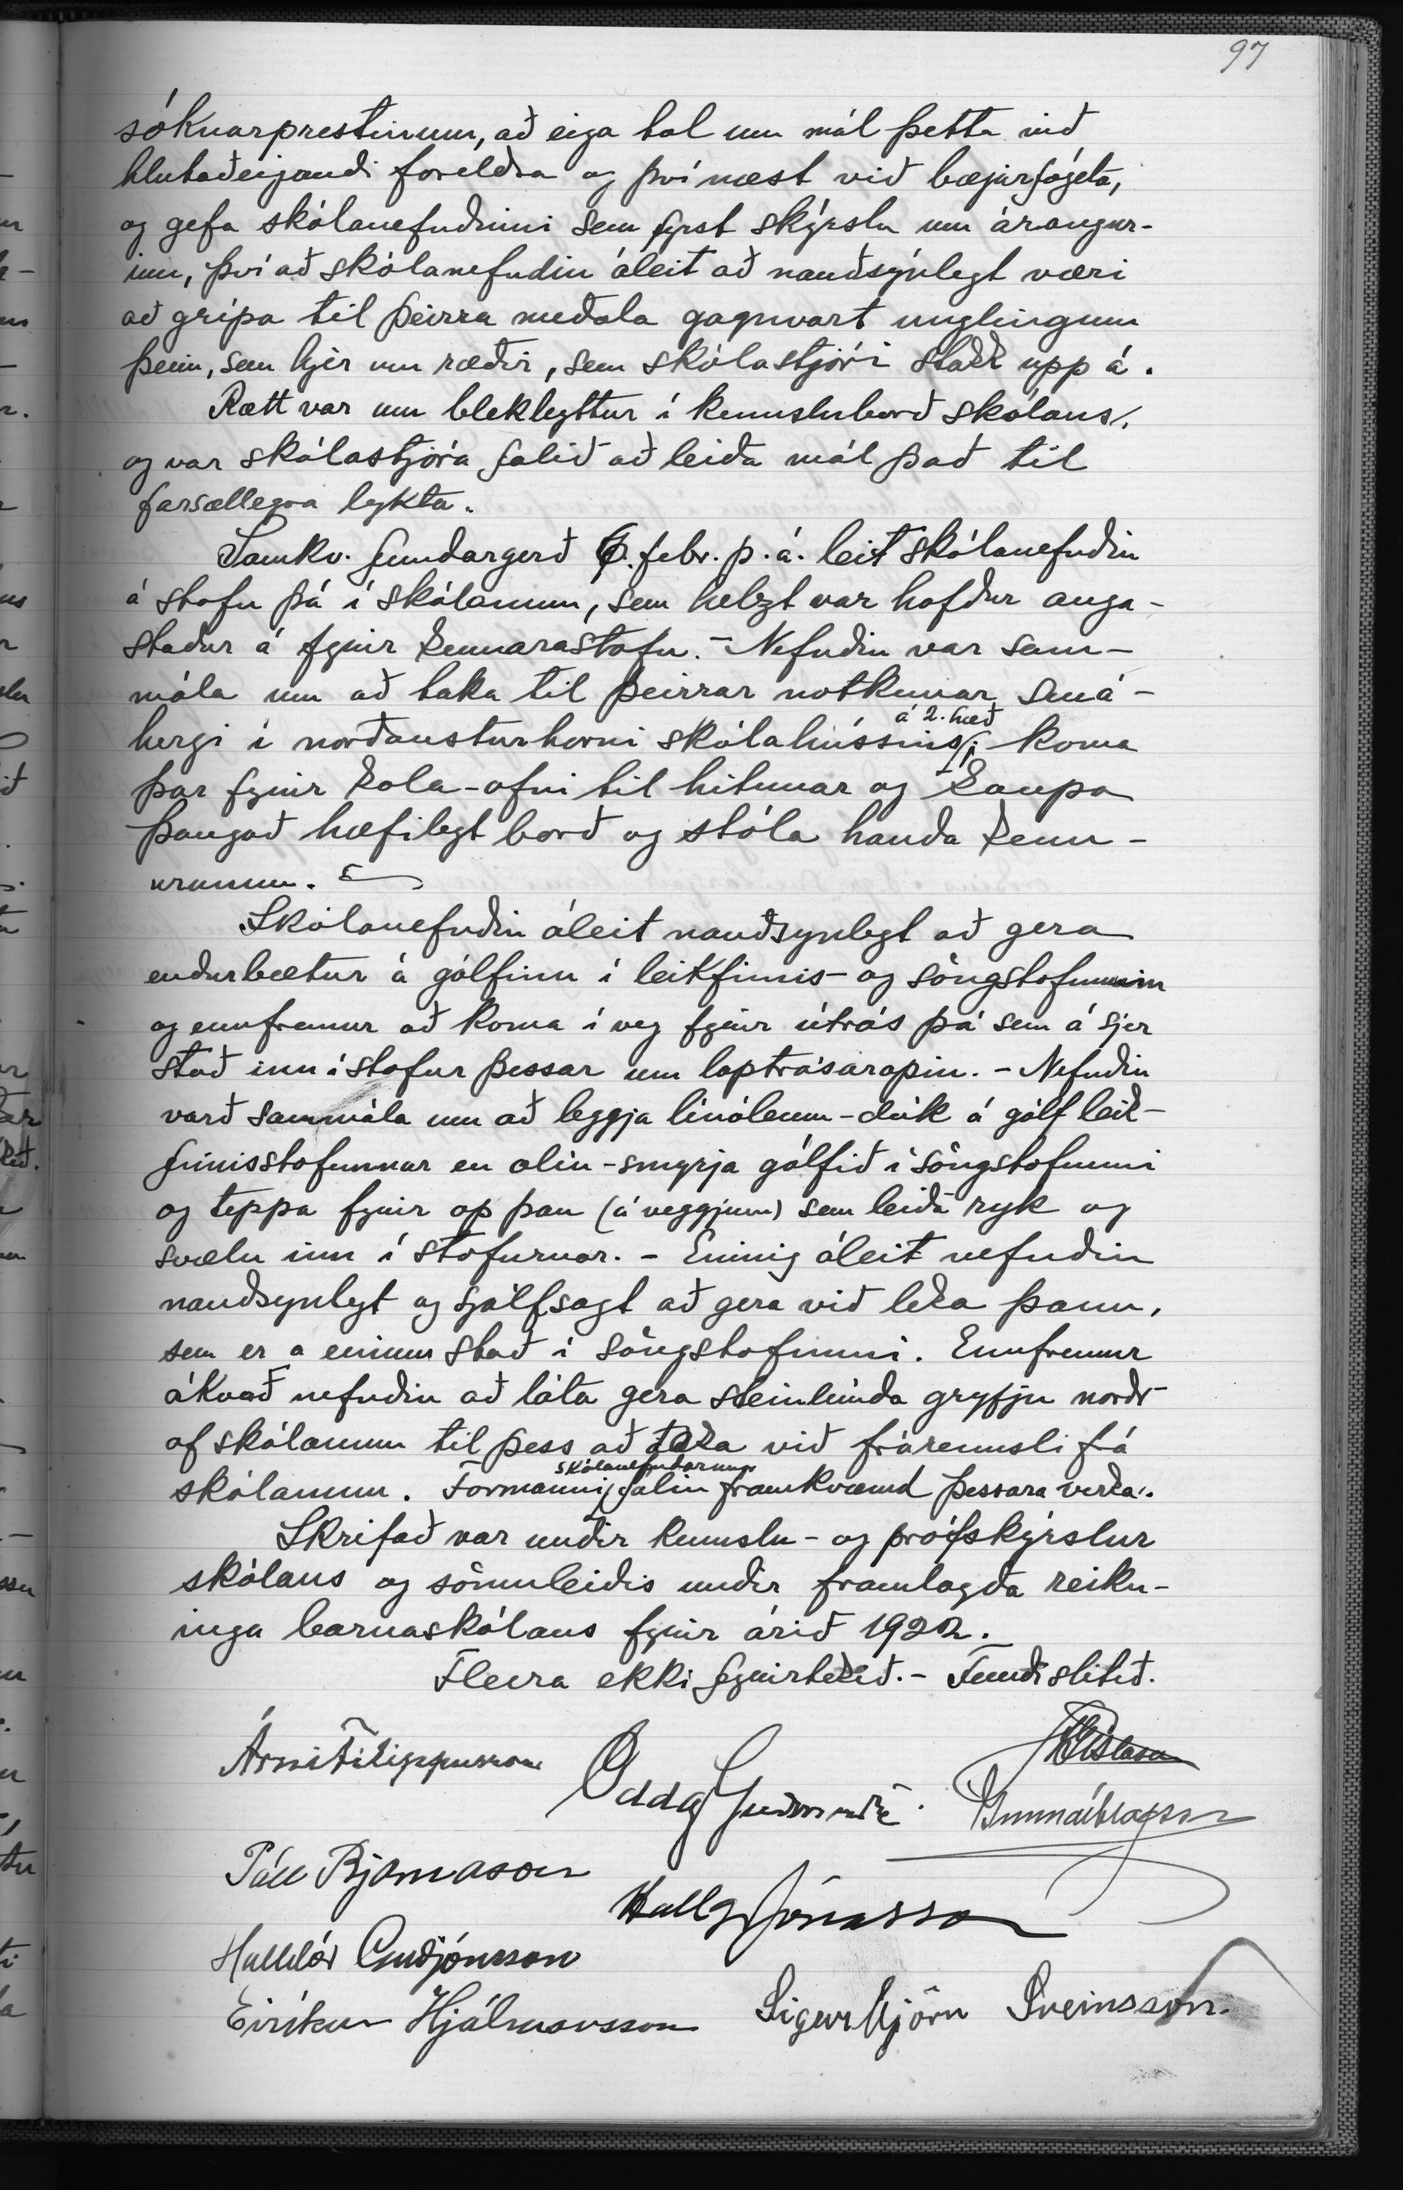 97
sóknarprestinum, að eiga tal um mál þetta við
hlutaðeigandi foreldra og því næst við bæjarfógeta,
og gefa skólanefndinni sem fyrst skýrslu um árangur-
inn, því að skólanefndin áleit að nauðsýnlegt væri
að grípa til þeirra meðala gagnvart unglingum
þeim, sem hjer um ræðir, sem skólastjóri stakk upp á.
Rætt var um blekbyttur í kennsluborð skólans,
og var skólastjóra falið að leiða mál það til
farsællegra lykta.
Samkv. fundargerð 6. febr. þ. á. leit skólanefndin
á stofu þá í skólanum, sem helzt var hafður auga-
staður á fyrir kennarastofu. - Nefndin var sam-
mála um að taka til þeirrar notkunar smá-
hergi í norðausturhorni skólahússins á 2. hæð, koma
þar fyrir kola-ofni til hitunar og kaupa
þangað hæfilegt borð og stóla handa kenn-
urunum.
Skólanefndin áleit nauðsynlegt að gera
endurbætur á gólfinu í leikfimis- og söngstofunum
og ennfremur að koma í veg fyrir útrás þá sem á sjer
stað inn í stofur þessar um loptrásaropin. - Nefndin
varð sammála um að leggja línóleum-dúk á gólf leik-
fimisstofunnar en olíu-smyrja gólfið í söngstofunni
og teppa fyrir op þau (á veggjum) sem leiða ryk og
svælu inn í stofurnar. - Einnig áleit nefndin
nauðsynlegt og sjálfsagt að gera við leka þann,
sem er a einum stað í söngstofunni. Ennfremur
ákvað nefndin að láta gera steinlímda gryfju norðr
af skólanum til þess að taka við frárennsli frá
skólanum. Formanni skólanefndarinnar falin framkvæmd þessara verka.
Skrifað var undir kennslu- og prófskýrslur
skólans og sömuleiðis undir framlagða reikn-
inga barnaskólans fyrir árið 1922.
Fleira ekki fyrirtekið. - Fundi slitið.
Árni Filippusson
Oddg Guðmundss.
Páll Bjarnason
Hallg Jónasson
Halldór Guðjónsson
Eiríkur Hjálmarsson
Sigurbjörn Sveinsson.